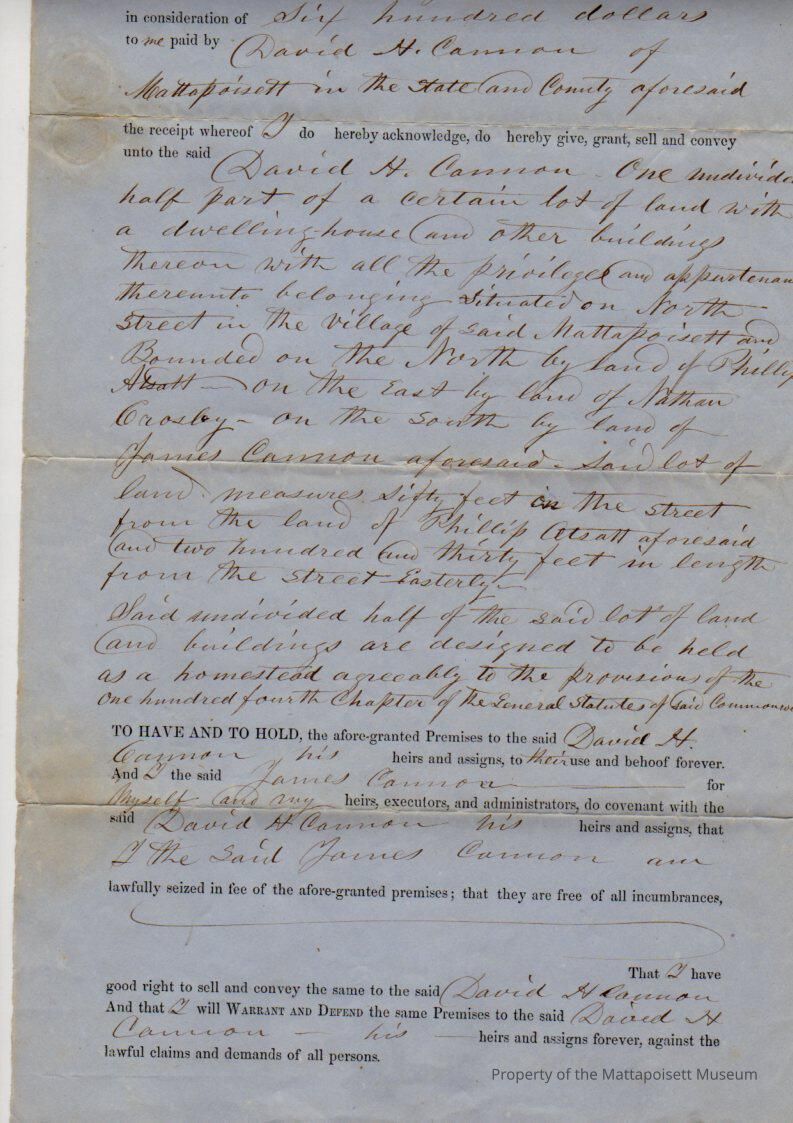 in consideration of Six hundred dollars
to me paid by David H. Cannon of
Mattapoisett in the State and County aforesaid
the receipt whereof I do hereby acknowledge, do hereby give, grant, sell and convey
unto the said David H. Cannon - One undivide
half part of a certain lot of land with
a dwelling-house and other buildings
thereon with all the privileges and appurtenan
thereunto belonging situated on North
Street in the Village of said Mattapoisett and
Bounded on the North by land of Phillip
Atsatt — on the East by land of Nathan
Crosby - on the South by land of
James Cannon aforesaid - Said lot of
land measures fifty feet on the street
from the land of Phillip Atsatt aforesaid
and two hundred and thirty feet in length
from the street Easterly —
Said undivided half of the said lot of land
and buildings are designed to be held
as a homestead agreeably to the provisions of the
One hundred fourth Chapter of the General Statutes of said Commonwe
TO HAVE AND TO HOLD, the afore-granted Premises to the said David H.
Cannon his heirs and assigns, to their use and behoof forever.
And I the said James Cannon — for
Myself and my heirs, executors, and administrators, do covenant with the
said David H Cannon his heirs and assigns, that
I the Said James Cannon am
lawfully seized in fee of the afore-granted premises; that they are free of all incumbrances,
That I have
good right to sell and convey the same to the said David H Cannon
And that I will WARRANT AND DEFEND the same Premises to the said David H
Cannon — his — heirs and assigns forever, against the
lawful claims and demands of all persons.
Property of the Mattapoisett Museum